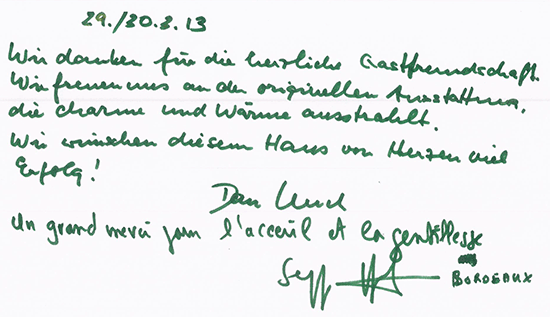 29./30.3.13
Wir danken für die herzliche Gastfreundschaft.
Wir freuen uns an der originellen Ausstattung,
die Charme und Wärme ausstrahlt.
Wir wünschen diesem Haus von Herzen viel
Erfolg!
Un grand merci pour l'acceuil et la gentillesse
Sepp
BORDEAUX